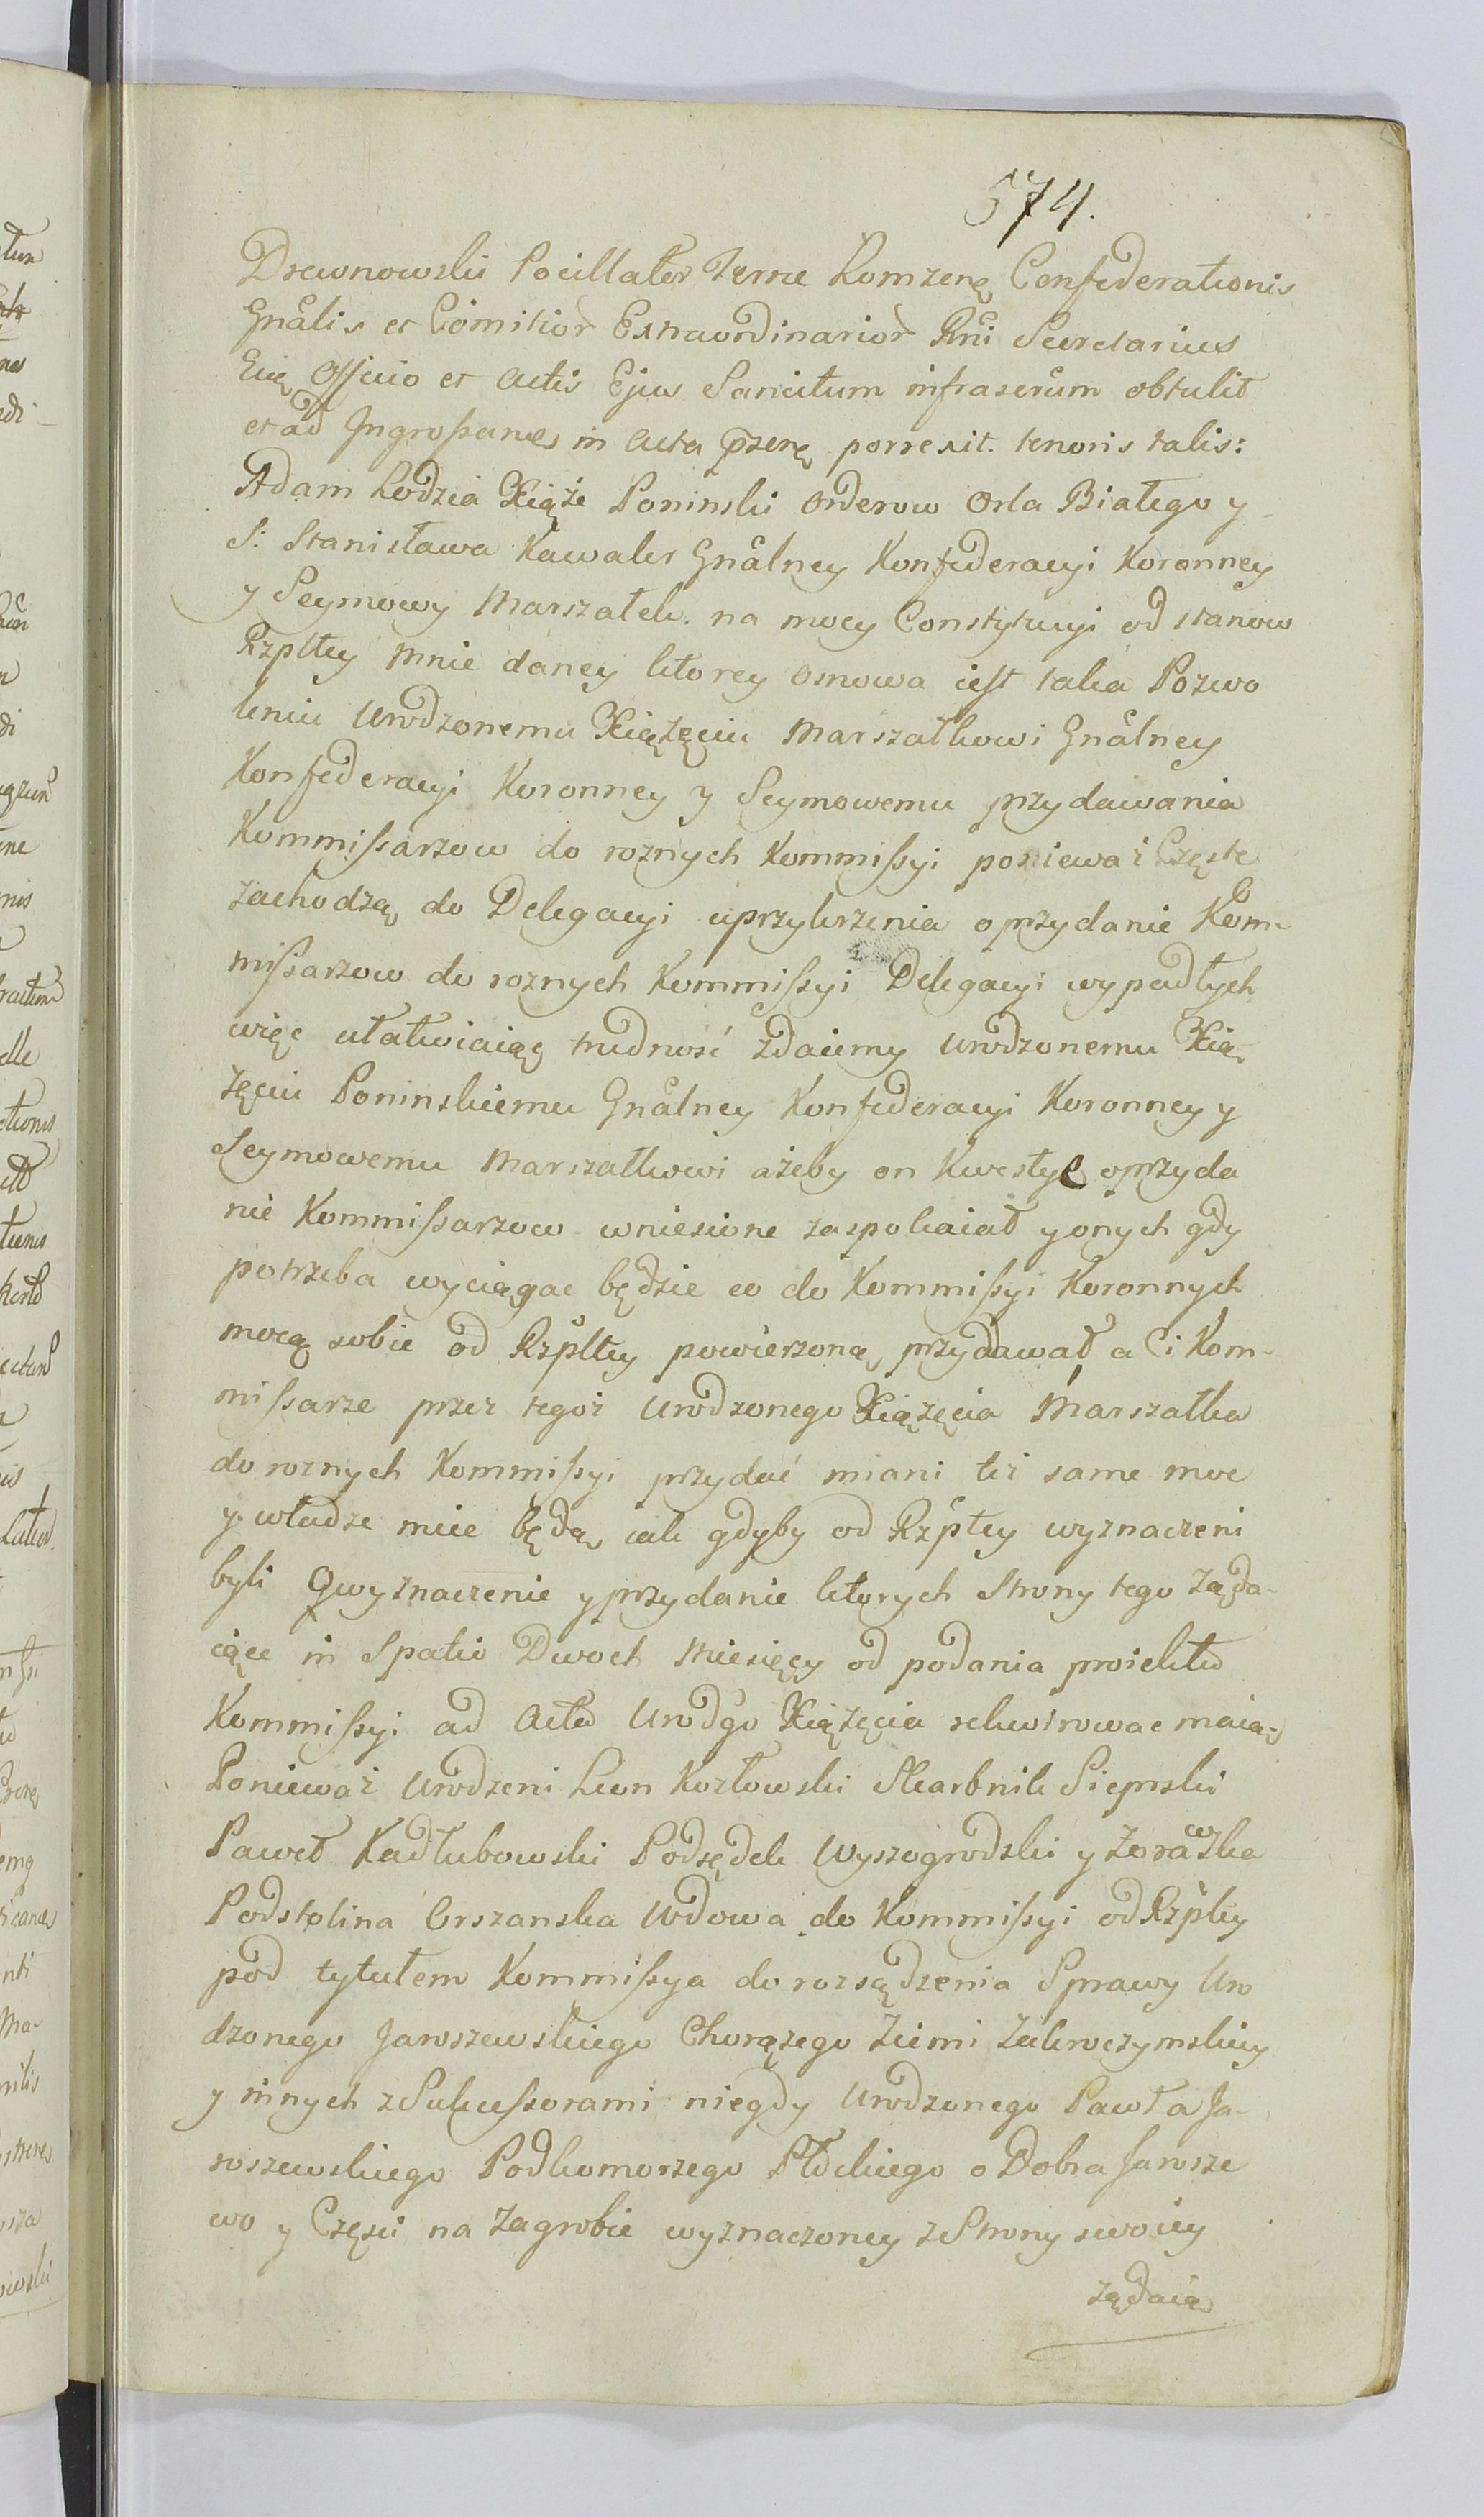 574.
Drewnowski Pocillator Terrae Łomzenę Confederationis
Gnâlis et Comitior Extraordinarior Rni Secretarius
Eię Officio et Actis Ejus Sancitum infrascrum obtulit
et ad Ingrossandū in Acta pzenę porrexit. tenoris talis:
Adam Łodzia Xiąże Poninski Orderow Orła Białego y
S: Stanisława Kawaler Gnâlney Konfederacyi Koronney
y Seymowy Marszałek. na mocy Constytucyi od stanow
Rzpltey mnie daney ktorey osnowa iest taka Pozwo
leniu Urodzonemu Xiążęciu Marszałkowi Gnâlney
Konfederacyi Koronney y Seymowemu przydawania
Kommissarzow do roznych Kommissyi poniewaź Częste
zachodzą do Delegacyi uprzykrzenia o przydanie Kom-
missarzow do roznych Kommissyi Delegacyi wypadłych
więc ułatwiaiąc trudność zdaiemy Urodzonemu Xią-
żęciu Poninskiemu Gnâlney Konfederacyi Koronney y
Seymowemu Marszałkowi ażeby on Kwestye o przyda
nie Kommissarzow wniesione zaspokaiał y onych gdy
potrzeba wyciągac będzie co do Kommissyi Koronnych
mocą sobie od Rzpltey powierzoną przydawał a Ci Kom-
missarze przez tegoż Urodzonego Xiążęcia Marszałka
do roznych Kommissyi przydać miani też same moc
y władze miec będą iak gdyby od Rzpltey wyznaczeni
byli O wyznaczenie y przydanie ktorych Strony tego żąda-
iące in Spatio Dwoch Miesięcy od podania proiektu
Kommissyi ad Acta Urodgo Xiążęcia rekwirowac maią
Poniewaź Urodzeni Leon Kozłowski Skarbnik Sieprski
Paweł Kadłubowski Podsędek Wyszogrodzki y Zorawska
Podstolina Orszanska Wdowa do Kommissyi od Rzpltey
pod tytułem Kommissya do rozsądzenia Sprawy Uro
dzonego Jaroszewskiego Chorążego Ziemi Zakroczymskiey
y innych z Sukcessorami niegdy Urodzonego Pawła Ja-
roszewskiego Podkomorzego Płockiego o Dobra Jarosze
wo y Części na Zagrobie wyznaczoney z Strony swoiey
żądaią